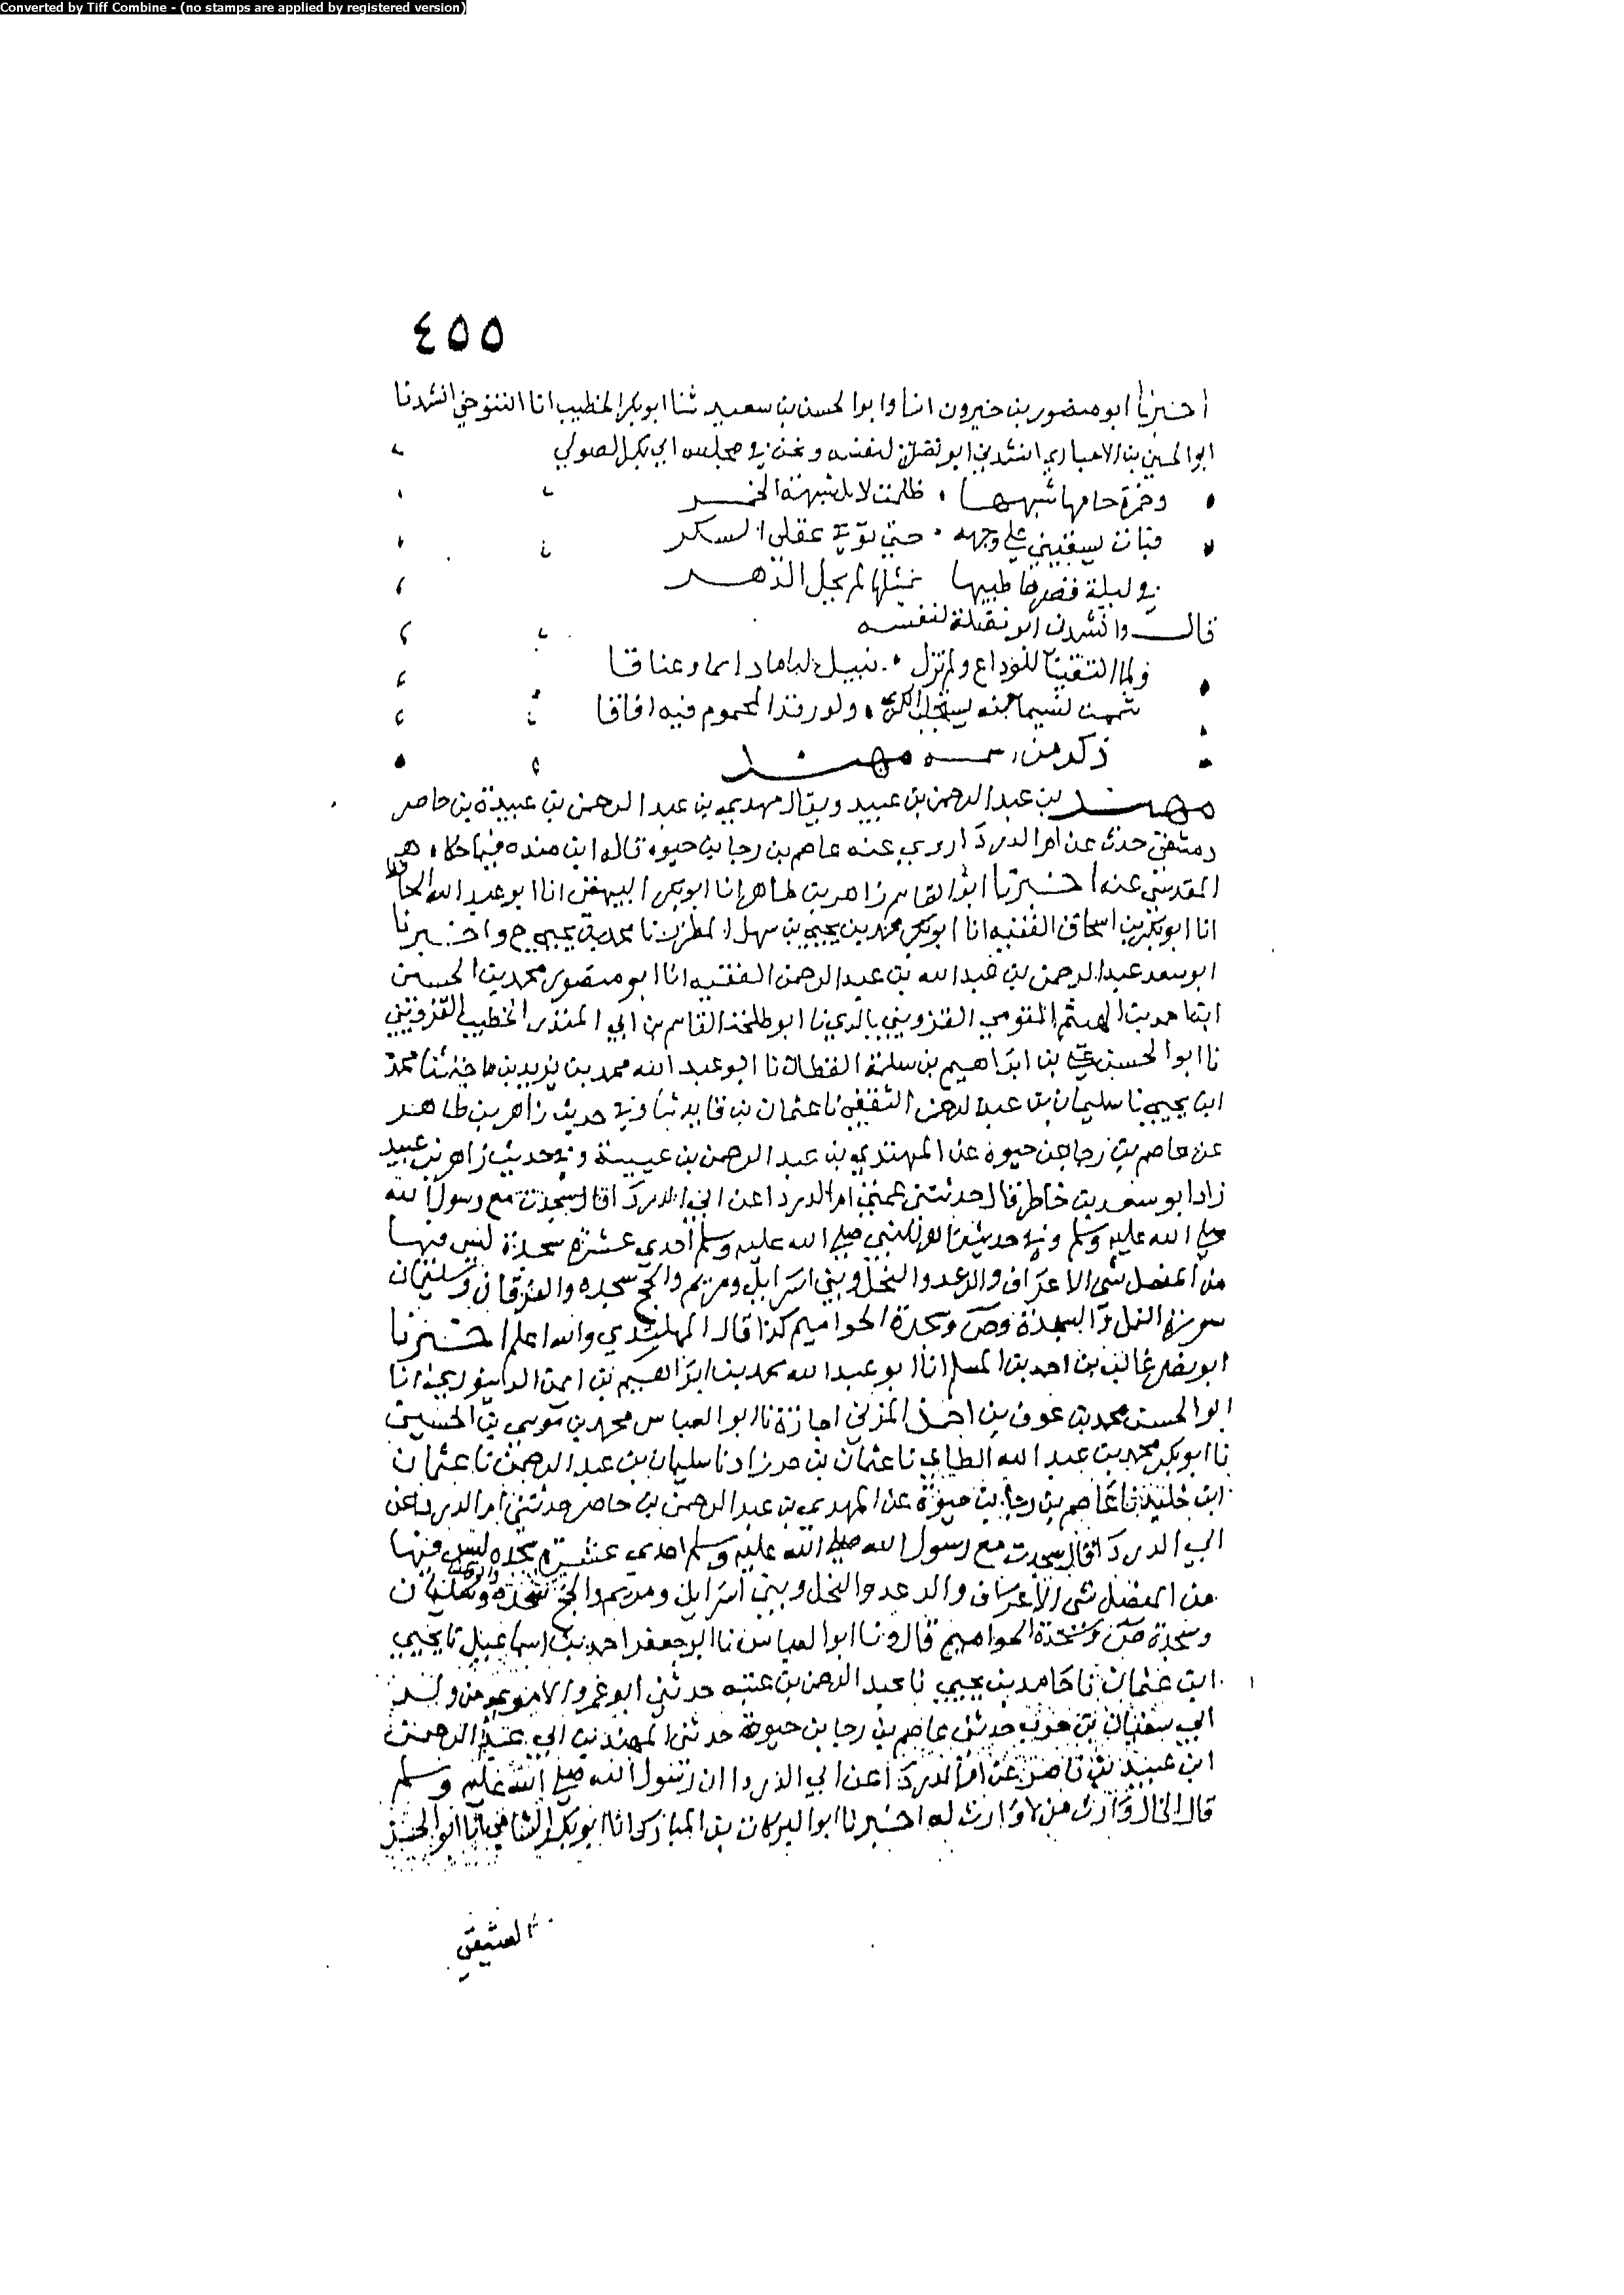 Converted by Tiff Combine - (no stamps are applied by registered version)
٤٥٥
اخبرنا ابو منصور بن خيرون انا وابو الحسن بن سعيد ثنا ابو بكر الخطيب انا التنوخي انشدنا
ابو الحسين بن الاخباري انشدني ابو نضلة لنفسه ونحن في مجلس ابي بكر الصولي
وخمرة جامها شبهها ظلمت لا بل شبهته الخمر
فبات يسقيني على وجهه حتى توفى عقلي السكر
في ليلة قصرها طيبها بمثلها لم يبخل الدهر
قال وانشدنا ابو نضلة لنفسه
ولما التقينا للوداع ولم تزل لثاما دائما وعناقا
شممت نسيما منه يستجلب الكرى ولو رقد المحموم فيه افاقا
ذكر من اسمه مهند
مهند بن عبد الرحمن بن عبيد ويقال مهدي بن عبد الرحمن بن عبيدة بن حاصر
دمشقي حدث عن ام الدردا روى عنه عاصم بن رجا بن حيوة قاله ابن منده فيما حكاه
المقدسي عنه اخبرنا ابو القاسم زاهر بن طاهر انا ابو بكر البيهقي انا ابو عبد الله الحافظ
انا ابو بكر بن اسحاق الفقيه انا ابو بكر محمد بن يحيى بن سهل المطرز نا محمد بن يحيى ح واخبرنا
ابو سعد عبد الرحمن بن عبد الله بن عبد الرحمن الفقيه انا ابو منصور محمد بن الحسين
ابن احمد بن الهيثم المقومي القزويني بالري نا ابو طلحة القاسم بن ابي المنذر الخطيب القزويني
نا ابو الحسن علي بن ابراهيم بن سلمة القطان نا ابو عبد الله محمد بن يزيد بن ماجة ثنا محمد
ابن يحيى نا سليمان بن عبد الرحمن الثقفي نا عثمان بن فايد ثنا وفي حديث زاهر بن طاهر
عن عاصم بن رجا بن حيوة عن المهتدي بن عبد الرحمن بن عيينة وفي حديث زاهر بن عبيد
زاد ابو سعد بن خاطر قال حدثتني عمتي ام الدردا عن ابي الدردا قال سجدت مع رسول الله
صلى الله عليه وسلم وفي حديث النبي صلى الله عليه وسلم احدى عشرة سجدة ليس فيها
من المفصل شي الاعراف والرعد والنحل وبني اسرايل ومريم والحج سجده والفرقان وسليمان
سورة النمل والسجدة وص وسجدة الحواميم كذا قال المهتدي والله اعلم اخبرنا
ابو نصر غالب بن احمد بن المسلم انا ابو عبد الله محمد بن ابراهيم بن ايمن الدينوري انا
ابو الحسن محمد بن عوف بن احمد المزني اجازة نا ابو العباس محمد بن موسى بن الحسين
نا ابو بكر محمد بن عبد الله الطايي نا عثمان بن خرزاد نا سليمان بن عبد الرحمن نا عثمان
ابن نا عاصم بن رجا بن حيوة عن المهدي بن عبد الرحمن بن حاصر حدثتني ام الدردا عن
ابي الدردا قال سجدت مع رسول الله صلى الله عليه وسلم احدى عشرة سجده ليس فيها
من المفصل شي الاعراف والرعد والنحل وبني اسرايل ومريم والحج سجدة والفرقان وسليمان
وسجدة ص وسجدة الحواميم قال ونا ابو العباس نا ابو جعفر احمد بن اسماعيل نا يحيى
ابن عثمان نا حامد بن يحيى نا عبد الرحمن بن عتبه حدثني ابو عمرو الاموي من ولد
ابي سفيان بن حرب حدثني عاصم بن رجا بن حيوة حدثني المهند بن ابي عبد الرحمن
ابن عبيد بن عن ام الدردا عن ابي الدردا ان رسول الله صلى الله عليه وسلم
قال الخال وارث من لا وارث له اخبرنا ابو البركات بن المبارك انا ابو بكر الشامي انا ابو الحسن
العتيقي